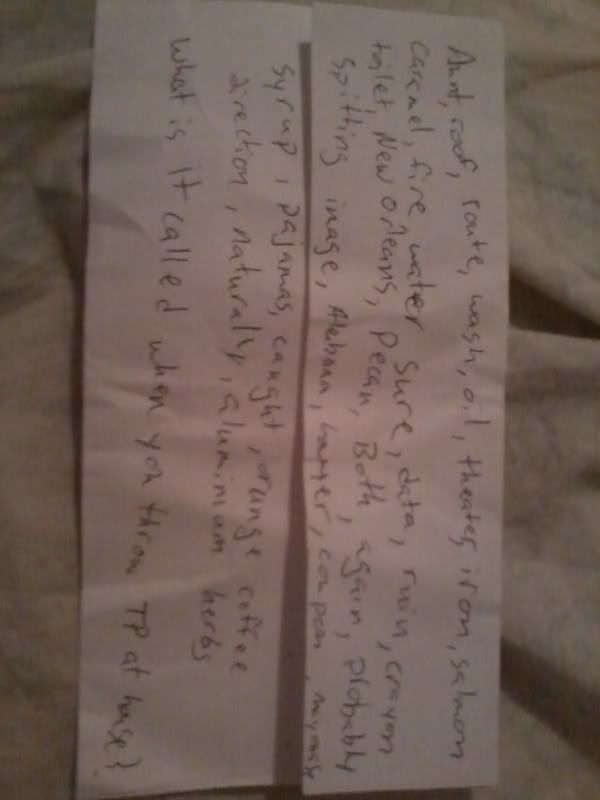 Aunt, roof, route, wash, oil, theater, iron, salmon
caramel, fire, water, sure, data, ruin, crayon
toilet, New Orleans, pecan, Both, again, probably
spitting image, Alabama, lawyer, coupon, mayonaise
syrup, pajamas, caught, orange, coffee
direction, naturally, aluminium, herbs
What is it called when you throw TP at house?